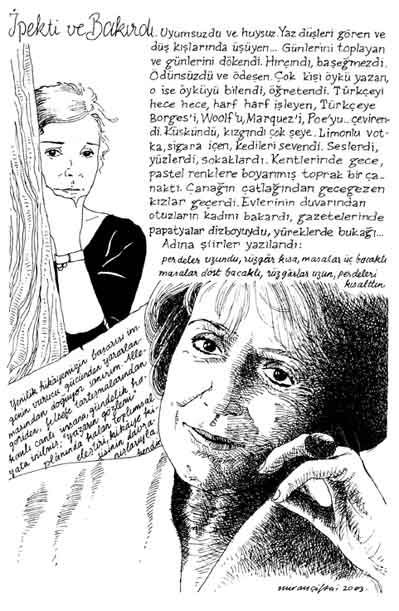 İpekti ve Bakırdı. Uyumsuzdu ve huysuz. Yaz düşleri gören ve
düş kışlarında üşüyen... Günlerini toplayan
ve günlerini dökendi. Hırçındı, başeğmezdi.
Ödünsüzdü ve ödeşen. Çok kişi öykü yazan,
o ise öyküyü bilendi, öğretendi. Türkçeyi
hece hece, harf harf işleyen, Türkçeye
Borges'i, Woolf'u, Marquez'i, Poe'yu... çeviren-
di. Küskündü, kızgındı çok şeye.. Limonlu vot-
ka, sigara içen, kedileri sevendi. Seslerdi,
yüzlerdi, sokaklardı. Kentlerinde gece,
pastel renklere boyanmış toprak bir ça..
naktı. Çanağın çatlağından gecegezen
kızlar geçerdi. Evlerinin duvarından
otuzların kadını bakardı, gazetelerinde
papatyalar dizboyuydu, yüreklerde bukağı...
Adına şiirler yazılandı:
perdeler uzundu, rüzgâr kısa, masalar üç bacaklı
masalar dört bacaklı, rüzgârlar uzun, perdeleri
kısalttın
Yenilik hikâyemizin başarısı im-
genin vurucu gücünden yararlan-
masından doğuyor sanırım. Alle-
goriden, felsefe tartışmalarından
kanlı canlı insana, gündelik ha-
yata inilmiş; "yazarın gözlemi"
plânında kalan toplumsal
eleştiri, hikâye ki-
şisinin davra-
nışlarıyla
nurançiftçi 2003